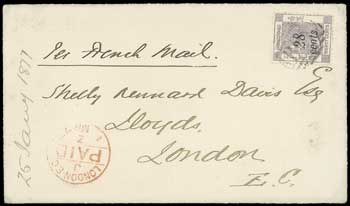 Per French Mail.
28
cents
Shelly Rennard Davis Esq
Lloyds,
London
E.C.
25 Jany 1877
LONDON E.C.
PAID